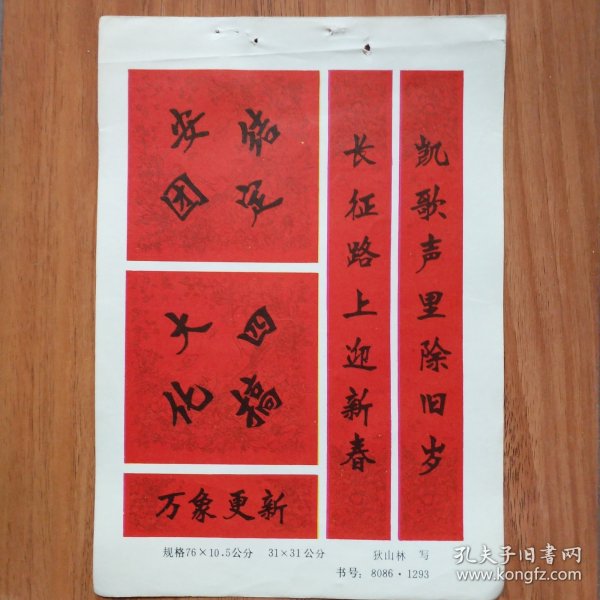 凯歌声里除旧岁
长征路上迎新春
安定团结
搞四化大
万象更新
规格76×10.5公分 31×31公分 狄山林 写
书号：8086·1293
孔夫子旧书网
www.kongfz.com